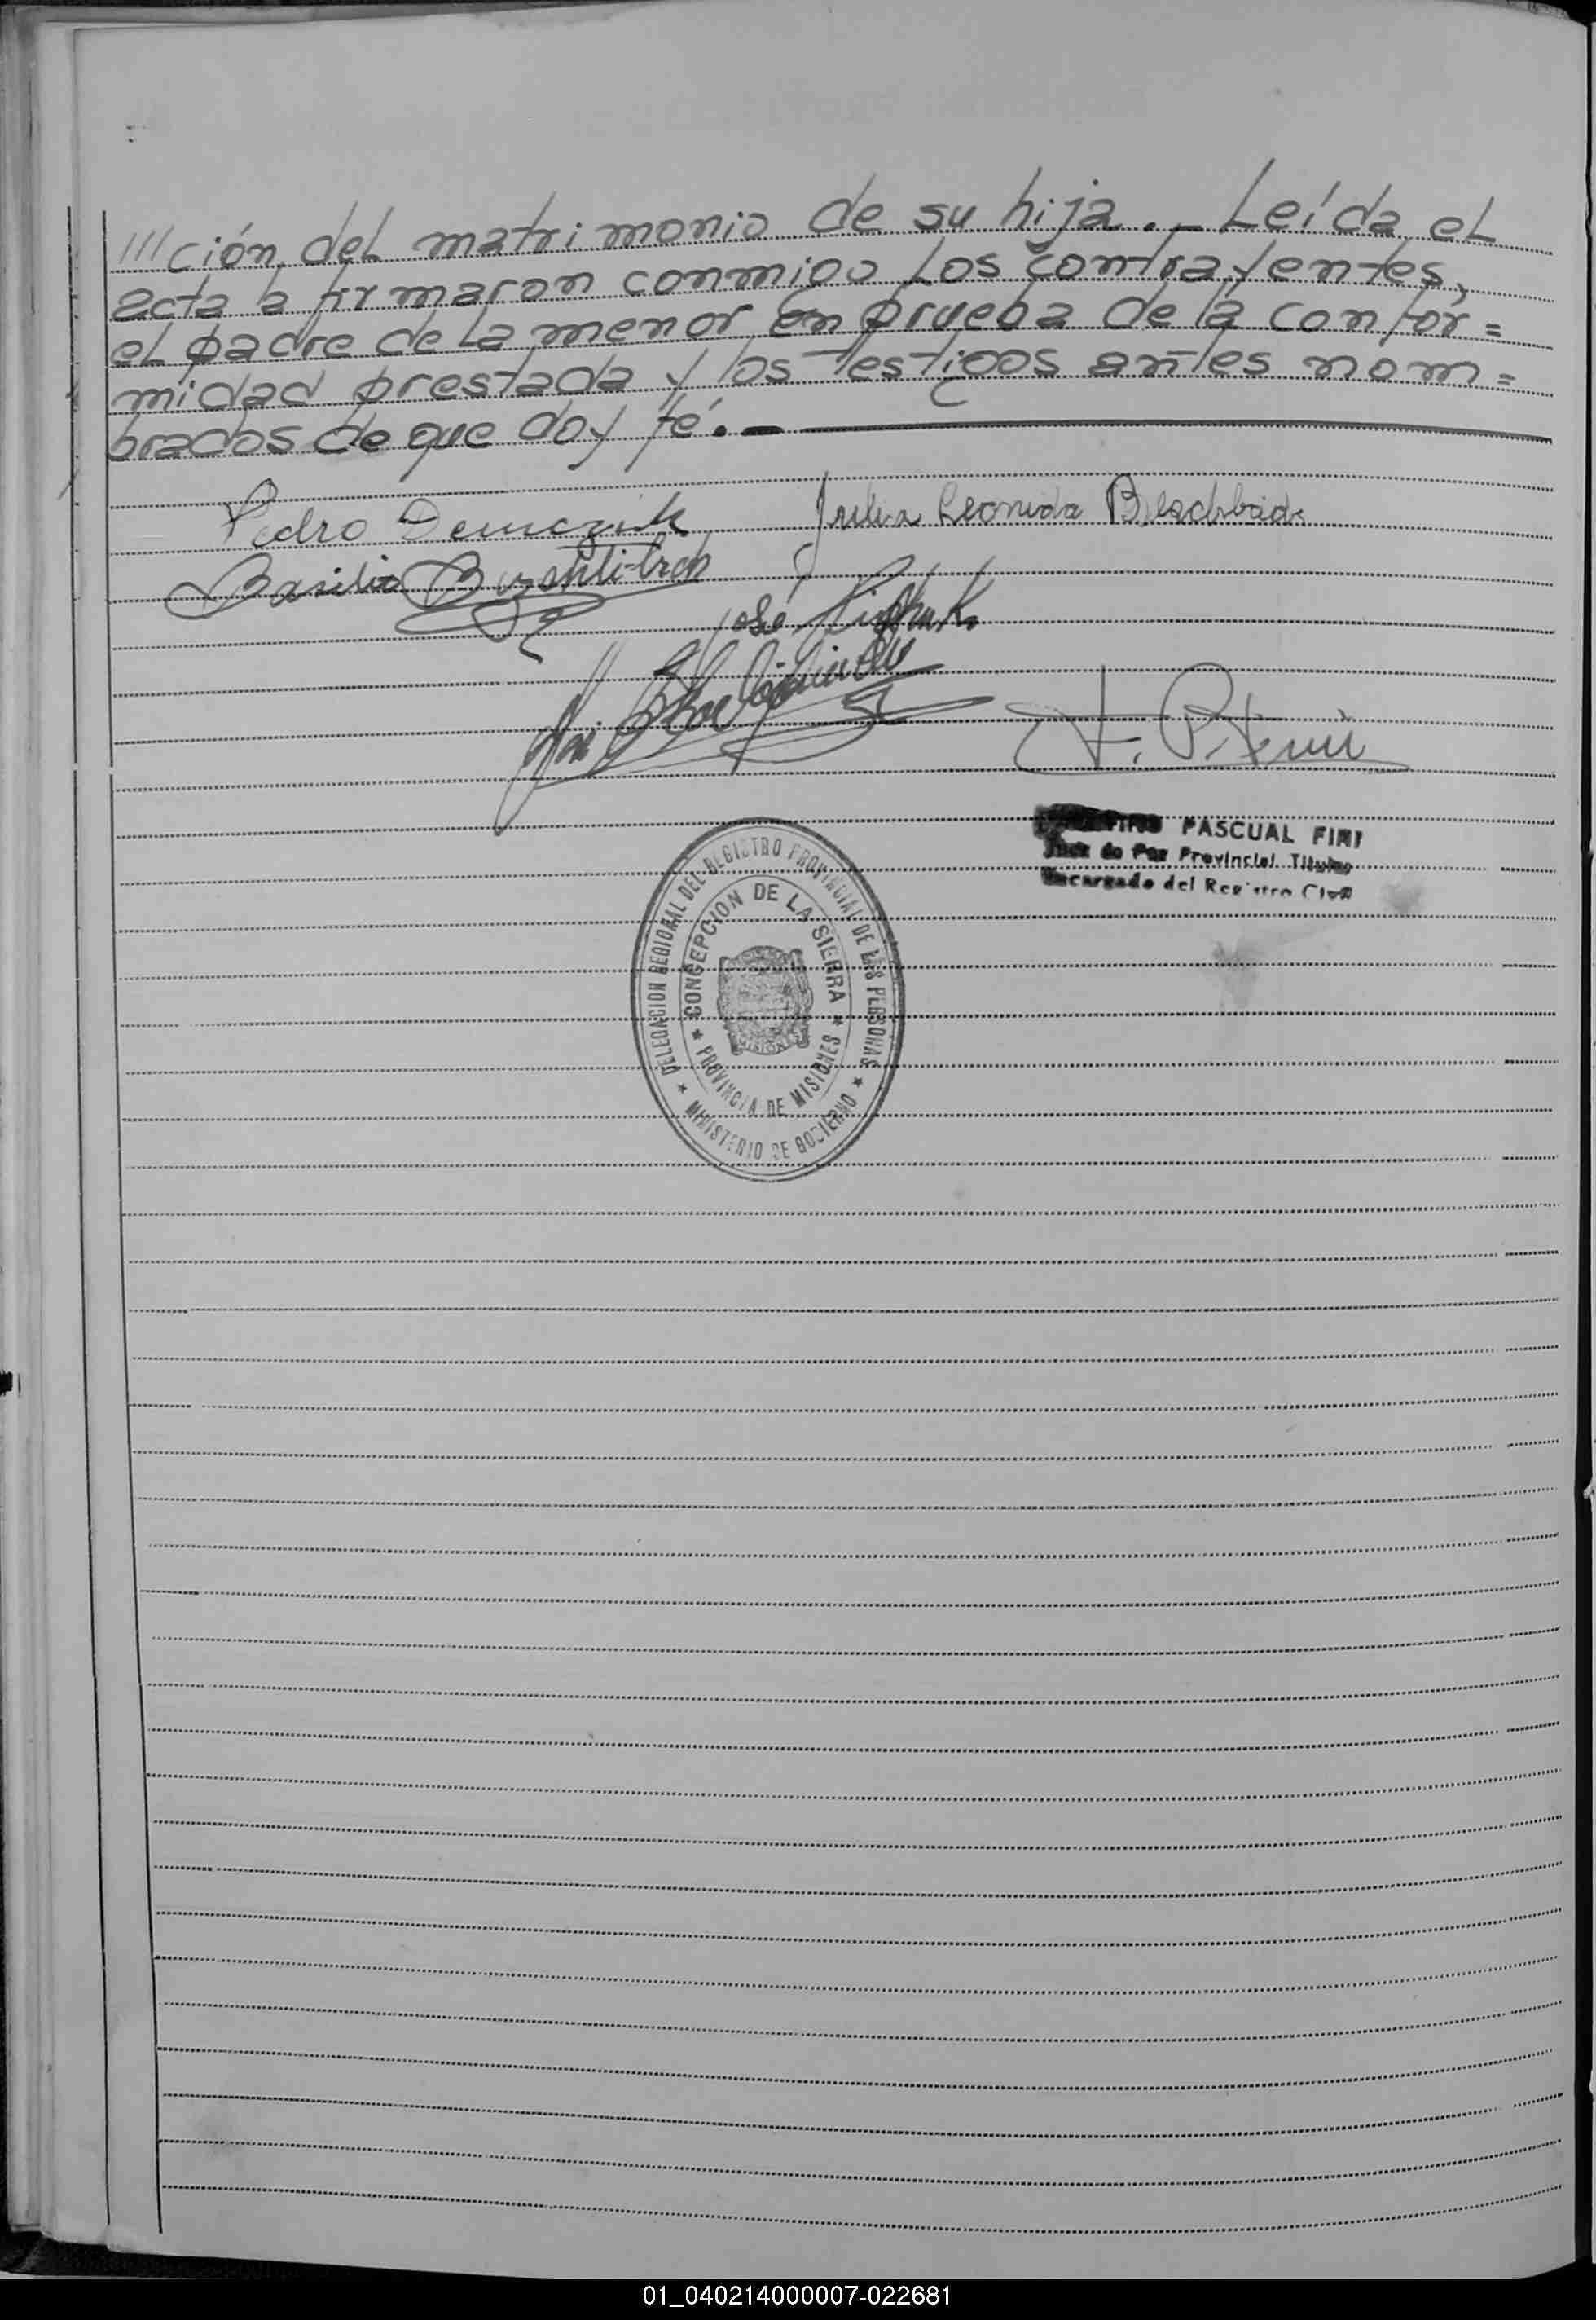 ///ción, del matrimonio de su hija.- Leída el
acta a firmaron conmigo los contrayentes,
el padre de la menor en prueba de la confor=
midad prestada y los testigos antes nom=
brados de que doy fé.-
Pedro Demczuk Julia Leonida
Basilio
José
F. P. Fini
PASCUAL FINI
Juez de Paz Provincial Titular
Encargado del Registro Civil
DELEGACION REGIONAL DEL REGISTRO PROVINCIAL DE LAS PERSONAS
CONCEPCION DE LA SIERRA
PROVINCIA DE MISIONES
MINISTERIO DE GOBIERNO
01_040214000007-022681